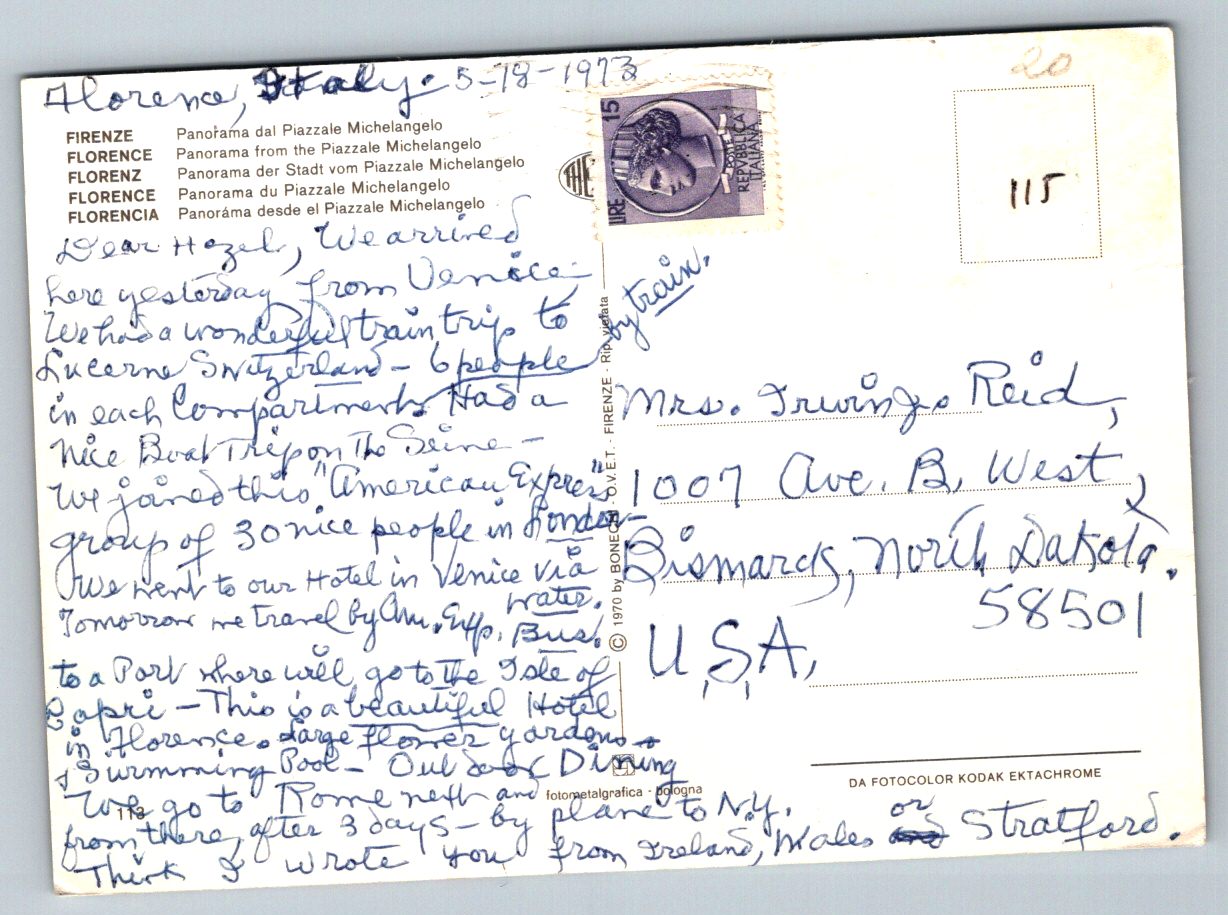 Florence, Italy. 5-18-1973
FIRENZE Panorama dal Piazzale Michelangelo
FLORENCE Panorama from the Piazzale Michelangelo
FLORENZ Panorama der Stadt vom Piazzale Michelangelo
FLORENCE Panorama du Piazzale Michelangelo
FLORENCIA Panoráma desde el Piazzale Michelangelo
Dear Hazel, We arrived
here yesterday from Venice
by train.
We had a wonderful train trip to
Lucerne Switzerland – 6 people
in each Compartment. Had a
nice Boat Trip on The Seine –
We joined this "American Express"
group of 30 nice people in London –
We went to our Hotel in Venice via
water.
Tomorrow we travel by Am. Exp. Bus.
to a Port where will go to The Isle of
Capri – This is a beautiful Hotel
in Florence. Large flower gardens
& Swimming Pool – Outdoor Dining
We go to Rome next and
from there, after 3 days – by plane to N.Y.
Think I wrote you from Ireland, Wales or Stratford.
113
THE
LIRE 15
POSTE
REPUBBLICA
ITALIANA
20
115
Mrs. Irwin J. Reid,
1007 Ave. B, West,
Bismarck, North Dakota.
58501
U.S.A,
© 1970 by BONECHI O.V.E.T. - FIRENZE - Rip. vietata
fotometalgrafica - bologna
DA FOTOCOLOR KODAK EKTACHROME